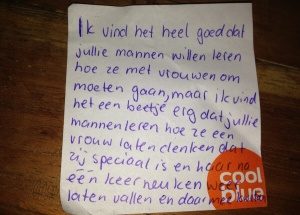 Ik vind het heel goed dat
jullie mannen willen leren
hoe ze met vrouwen om
moeten gaan, maar ik vind
het een beetje erg dat jullie
mannen leren hoe ze een
vrouw laten denken dat
zij speciaal is en haar na
één keer neuken weer
laten vallen en daarmee
cool
blue